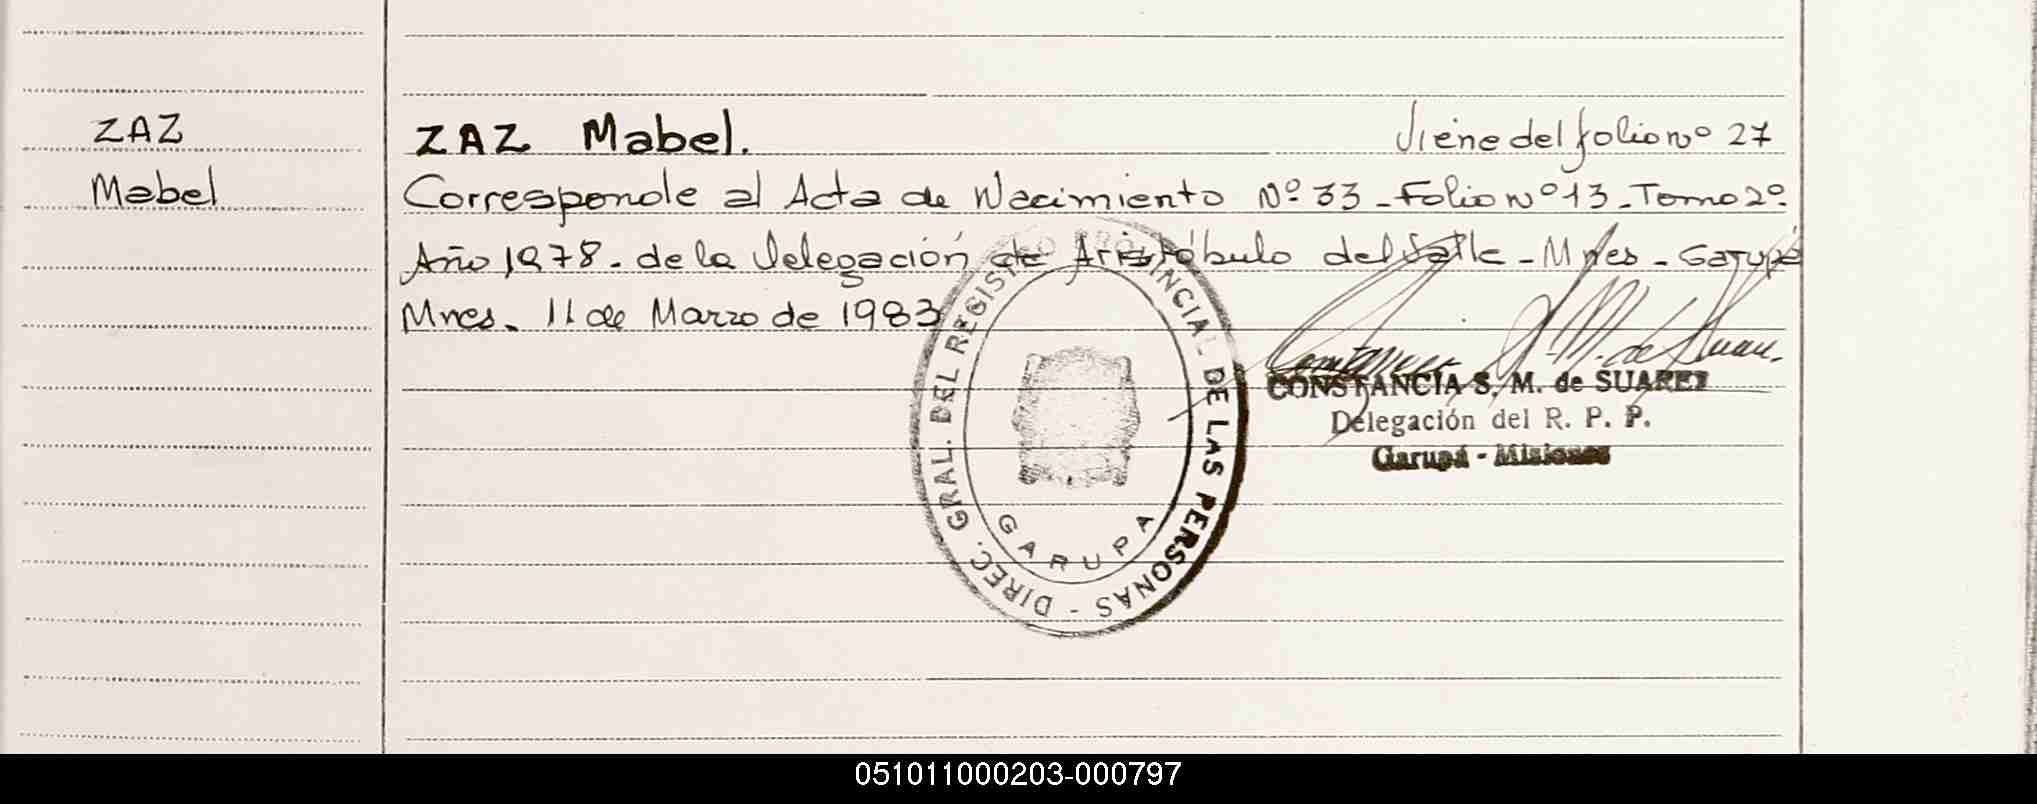 ZAZ
Mabel
ZAZ Mabel. Viene del folio nº 27
Corresponde al Acta de Nacimiento Nº 33 - Folio nº 13 - Tomo 2º
Año 1978 - de la Delegación de Aristóbulo del Valle - Mnes - Garupá
Mnes. 11 de Marzo de 1983
DIREC. GRAL. DEL REGISTRO PROVINCIAL DE LAS PERSONAS -
GARUPA
CONSTANCIA S. M. de SUAREZ
Delegación del R. P. P.
Garupá - Misiones
051011000203-000797